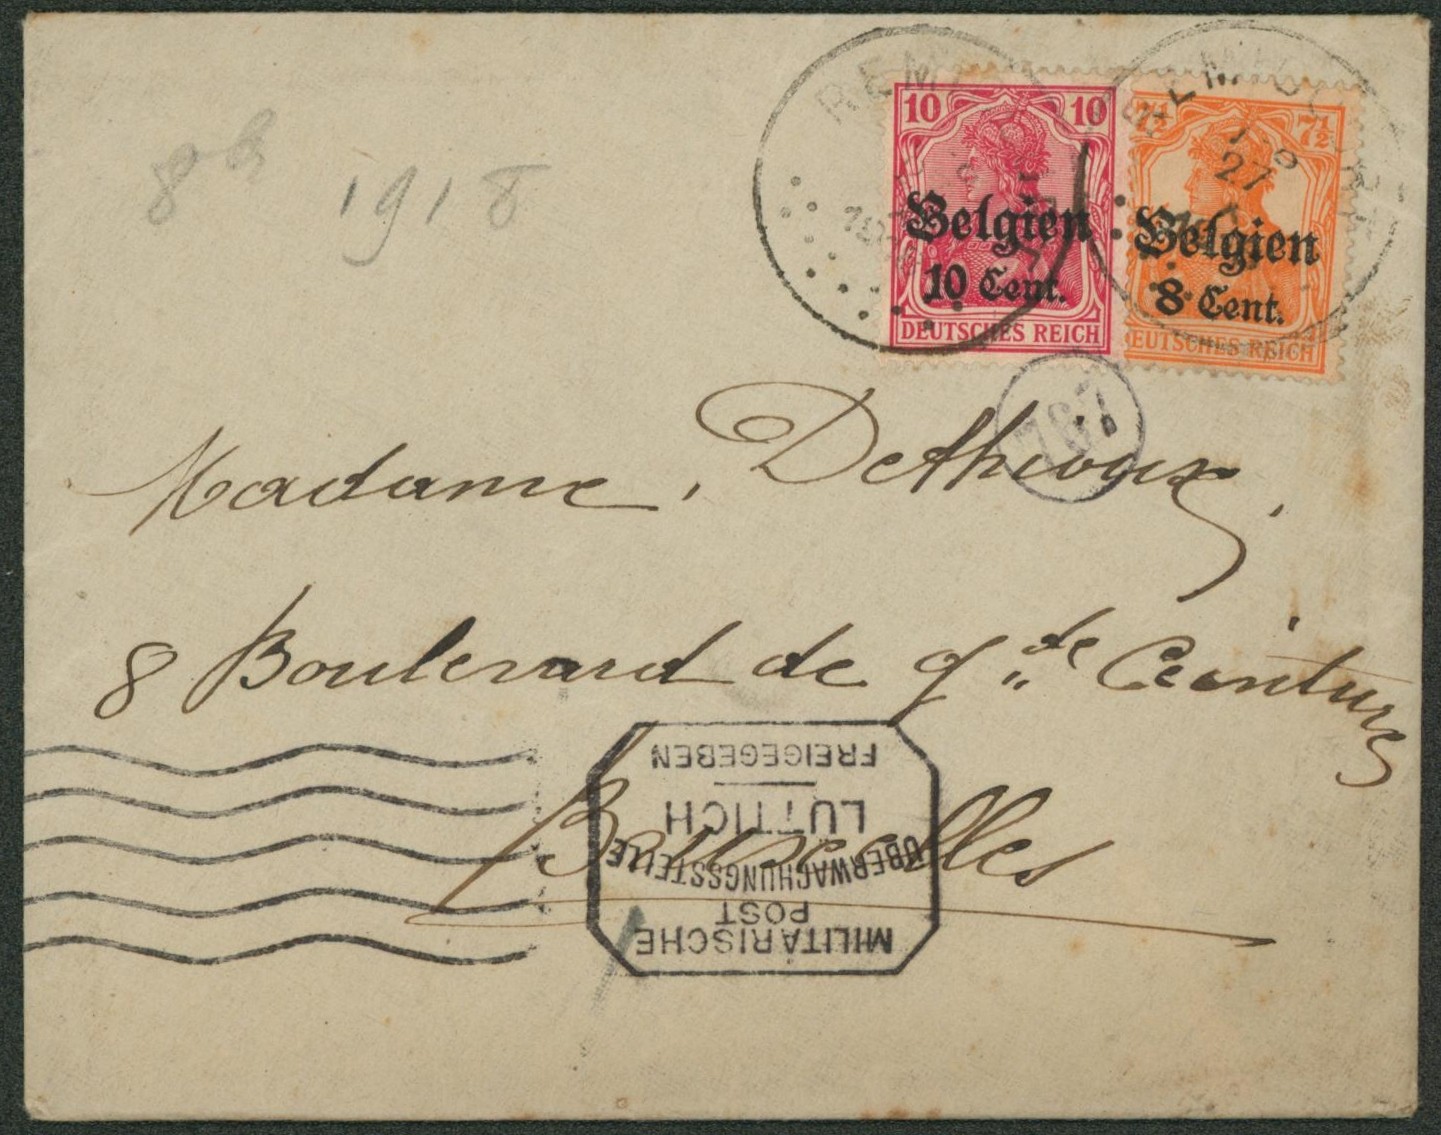 8b 1918
10 10
Belgien
10 Cent.
DEUTSCHES REICH
7½ 7½
Belgien
8 Cent.
DEUTSCHES REICH
27
787
Madame Dethioux,
8 Boulevard de gde Ceinture
Bruxelles
MILITÄRISCHE
POST
ÜBERWACHUNGSSTELLE
LÜTTICH
FREIGEGEBEN